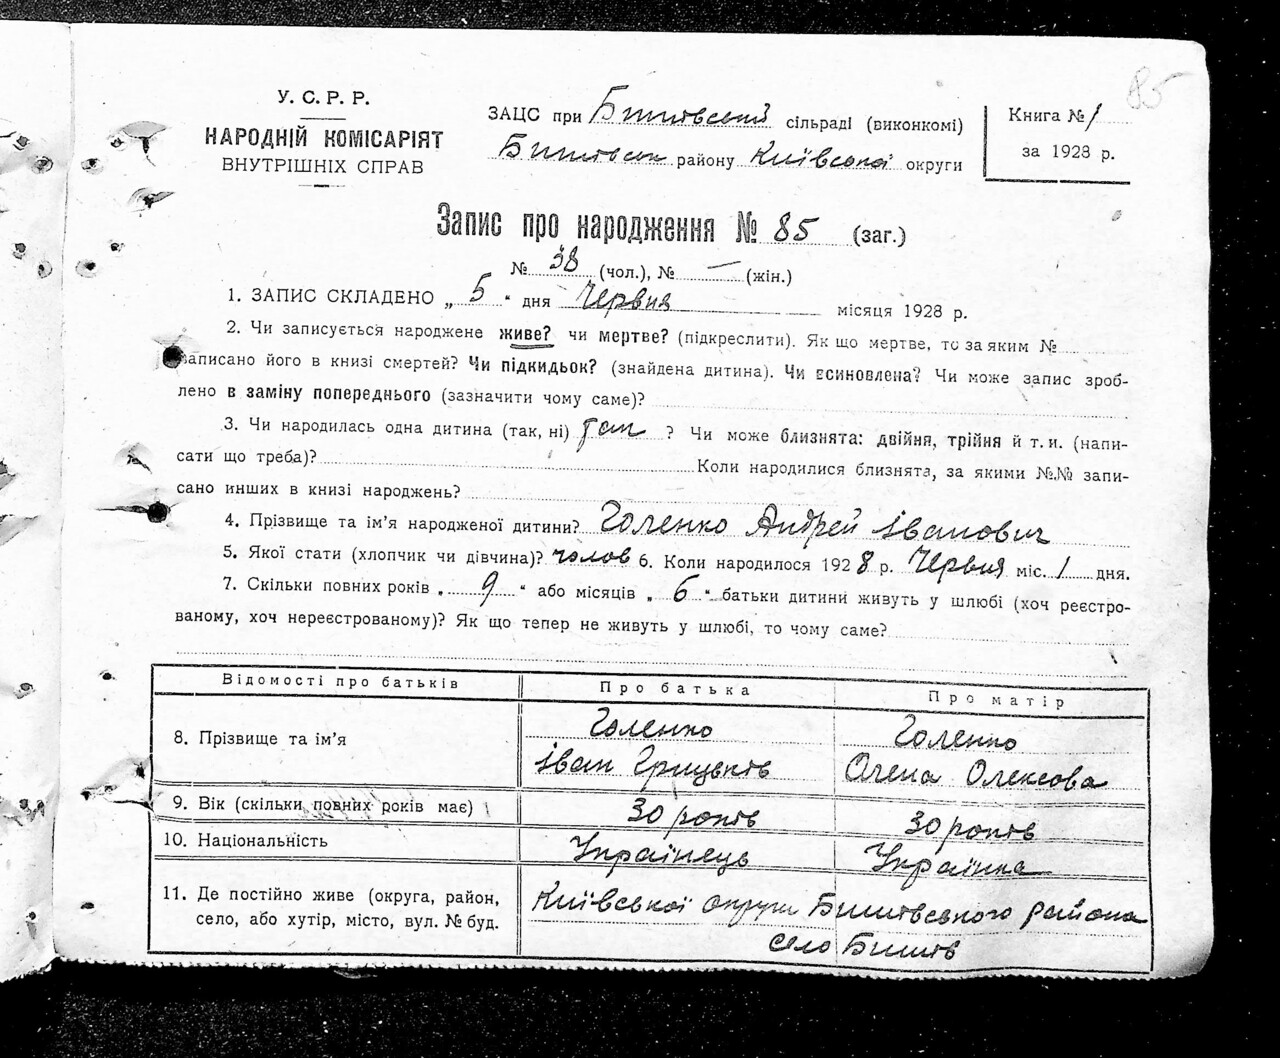 85
У. С. Р. Р.
НАРОДНІЙ КОМІСАРІЯТ
ВНУТРІШНІХ СПРАВ
ЗАЦС при Бишівський сільраді (виконкомі)
Бишівськ району Київської округи
Книга № 1
за 1928 р.
Запис про народження № 85 (заг.)
№ 38 (чол.), № — (жін.)
1. ЗАПИС СКЛАДЕНО „ 5 “ дня Червня місяця 1928 р.
2. Чи записується народжене живе? чи мертве? (підкреслити). Як що мертве, то за яким №
записано його в книзі смертей? Чи підкидьок? (знайдена дитина). Чи всиновлена? Чи може запис зроб-
лено в заміну попереднього (зазначити чому саме)?
3. Чи народилась одна дитина (так, ні) так ? Чи може близнята: двійня, трійня й т. и. (напи-
сати що треба)? Коли народилися близнята, за якими №№ запи-
сано инших в книзі народжень?
4. Прізвище та ім’я народженої дитини? Голенко Андрей Іванович
5. Якої стати (хлопчик чи дівчина)? чолов 6. Коли народилося 1928 р. Червня міс. 1 дня.
7. Скільки повних років „ 9 “ або місяців „ 6 “ батьки дитини живуть у шлюбі (хоч реєстро-
ваному, хоч нереєстрованому)? Як що тепер не живуть у шлюбі, то чому саме?
Відомості про батьків Про батька Про матір
8. Прізвище та ім’я Голенко Іван Грицьків Голенко Олена Олексова
9. Вік (скільки повних років має) 30 років 30 років
10. Національність Українець Українка
11. Де постійно живе (округа, район, Київської округи Бишівського района
село, або хутір, місто, вул. № буд. село Бишів